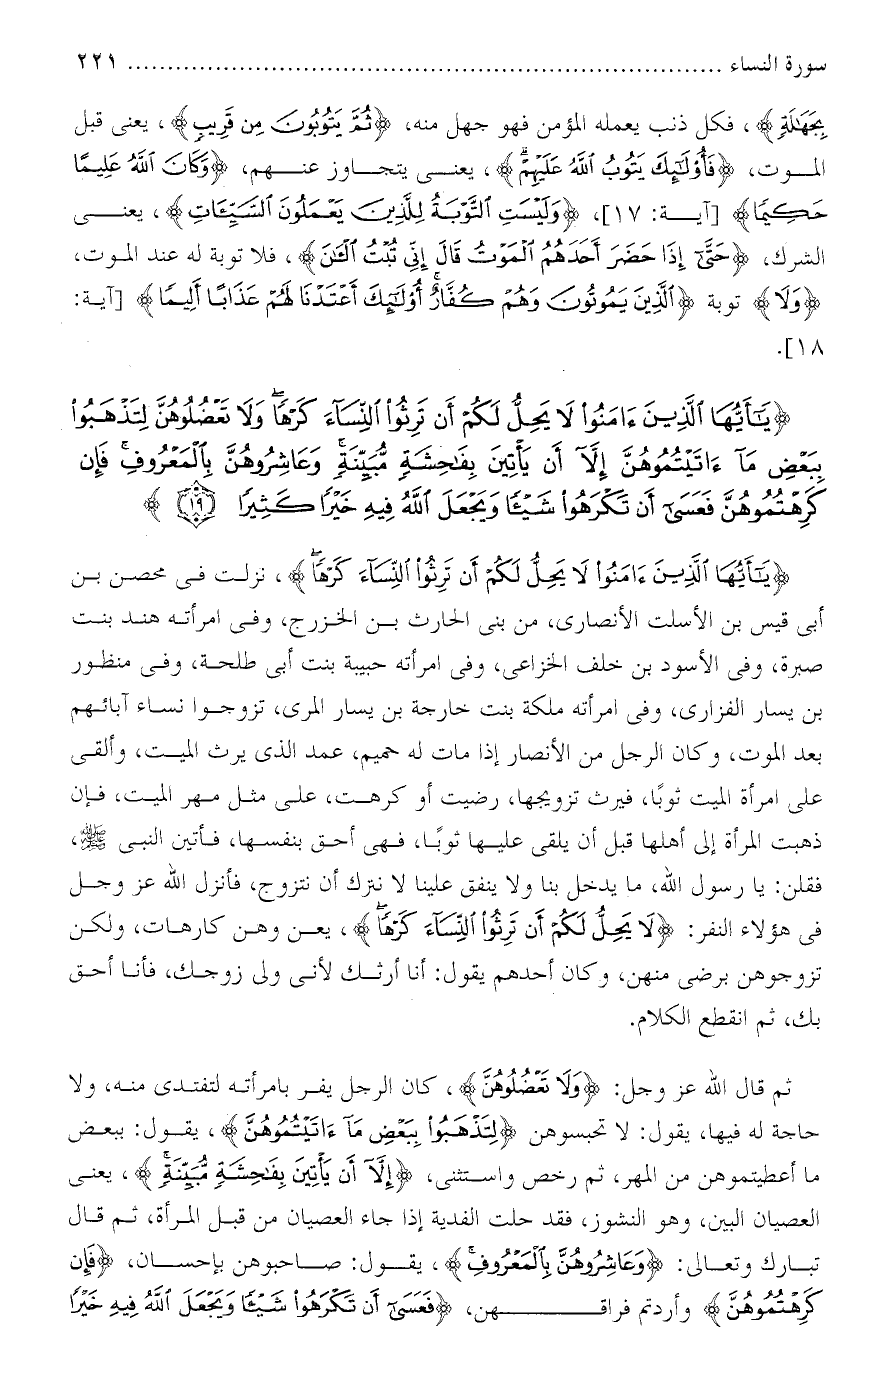 سورة النساء ........................................................................ ٢٢١
بِجَهَالَةٍ﴾، فكل ذنب يعمله المؤمن فهو جهل منه، ﴿ثُمَّ يَتُوبُونَ مِن قَرِيبٍ﴾، يعنى قبل
الموت، ﴿فَأُوْلَٰٓئِكَ يَتُوبُ ٱللَّهُ عَلَيْهِمْۗ﴾، يعنى يتجاوز عنهم، ﴿وَكَانَ ٱللَّهُ عَلِيمًا
حَكِيمًا﴾ [آية: ١٧]، ﴿وَلَيْسَتِ ٱلتَّوْبَةُ لِلَّذِينَ يَعْمَلُونَ ٱلسَّيِّئَاتِ﴾، يعنى
الشرك، ﴿حَتَّىٰٓ إِذَا حَضَرَ أَحَدَهُمُ ٱلْمَوْتُ قَالَ إِنِّى تُبْتُ ٱلْـَٰٔنَ﴾، فلا توبة له عند الموت،
﴿وَلَا﴾ توبة ﴿ٱلَّذِينَ يَمُوتُونَ وَهُمْ كُفَّارٌۚ أُوْلَٰٓئِكَ أَعْتَدْنَا لَهُمْ عَذَابًا أَلِيمًا﴾ [آية:
١٨].
﴿يَٰٓأَيُّهَا ٱلَّذِينَ ءَامَنُوا۟ لَا يَحِلُّ لَكُمْ أَن تَرِثُوا۟ ٱلنِّسَآءَ كَرْهًاۖ وَلَا تَعْضُلُوهُنَّ لِتَذْهَبُوا۟
بِبَعْضِ مَآ ءَاتَيْتُمُوهُنَّ إِلَّآ أَن يَأْتِينَ بِفَٰحِشَةٍ مُّبَيِّنَةٍۚ وَعَاشِرُوهُنَّ بِٱلْمَعْرُوفِۚ فَإِن
كَرِهْتُمُوهُنَّ فَعَسَىٰٓ أَن تَكْرَهُوا۟ شَيْـًٔا وَيَجْعَلَ ٱللَّهُ فِيهِ خَيْرًا كَثِيرًا ١٩ ﴾
﴿يَٰٓأَيُّهَا ٱلَّذِينَ ءَامَنُوا۟ لَا يَحِلُّ لَكُمْ أَن تَرِثُوا۟ ٱلنِّسَآءَ كَرْهًاۖ﴾، نزلت فى محصن بن
أبى قيس بن الأسلت الأنصارى، من بنى الحارث بن الخزرج، وفى امرأته هند بنت
صبرة، وفى الأسود بن خلف الخزاعى، وفى امرأته حبيبة بنت أبى طلحة، وفى منظور
بن يسار الفزارى، وفى امرأته ملكة بنت خارجة بن يسار المرى، تزوجوا نساء آبائهم
بعد الموت، وكان الرجل من الأنصار إذا مات له حميم، عمد الذى يرث الميت، وألقى
على امرأة الميت ثوبًا، فيرث تزويجها، رضيت أو كرهت، على مثل مهر الميت، فإن
ذهبت المرأة إلى أهلها قبل أن يلقى عليها ثوبًا، فهى أحق بنفسها، فأتين النبى ﷺ،
فقلن: يا رسول الله، ما يدخل بنا ولا ينفق علينا لا نترك أن نتزوج، فأنزل الله عز وجل
فى هؤلاء النفر: ﴿لَا يَحِلُّ لَكُمْ أَن تَرِثُوا۟ ٱلنِّسَآءَ كَرْهًاۖ﴾، يعن وهن كارهات، ولكن
تزوجوهن برضى منهن، وكان أحدهم يقول: أنا أرثك لأنى ولى زوجك، فأنا أحق
بك، ثم انقطع الكلام.
ثم قال الله عز وجل: ﴿وَلَا تَعْضُلُوهُنَّ﴾، كان الرجل يفر بامرأته لتفتدى منه، ولا
حاجة له فيها، يقول: لا تحبسوهن ﴿لِتَذْهَبُوا۟ بِبَعْضِ مَآ ءَاتَيْتُمُوهُنَّ﴾، يقول: ببعض
ما أعطيتموهن من المهر، ثم رخص واستثنى، ﴿إِلَّآ أَن يَأْتِينَ بِفَٰحِشَةٍ مُّبَيِّنَةٍۚ﴾، يعنى
العصيان البين، وهو النشوز، فقد حلت الفدية إذا جاء العصيان من قبل المرأة، ثم قال
تبارك وتعالى: ﴿وَعَاشِرُوهُنَّ بِٱلْمَعْرُوفِۚ﴾، يقول: صاحبوهن بإحسان، ﴿فَإِن
كَرِهْتُمُوهُنَّ﴾ وأردتم فراقهن، ﴿فَعَسَىٰٓ أَن تَكْرَهُوا۟ شَيْـًٔا وَيَجْعَلَ ٱللَّهُ فِيهِ خَيْرًا